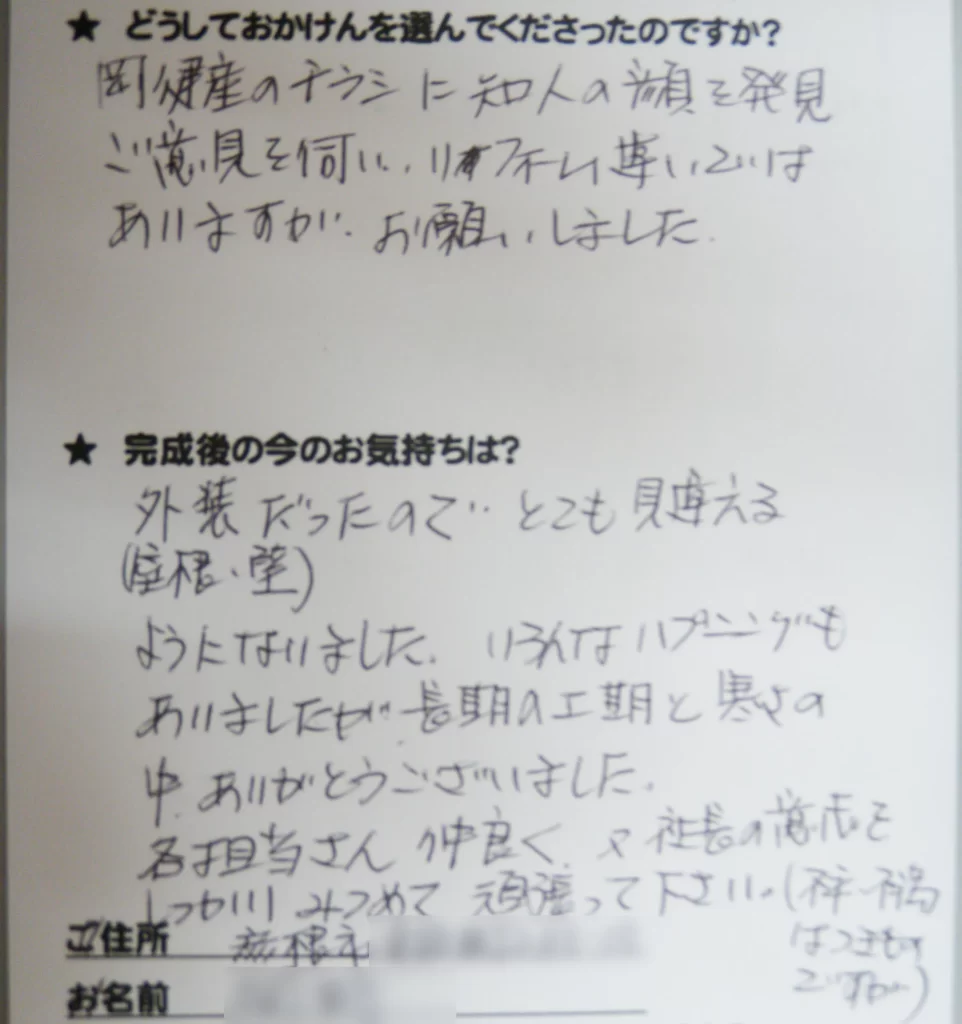 ★ どうしておかけんを選んでくださったのですか?
岡健産のチラシに知人の顔を発見
ご意見を伺い、リフォーム導いでは
ありますが、お願いしました。
★ 完成後の今のお気持ちは?
外装だったので、とても見違える
(屋根・壁)
ようになりました。いろんなハプニングも
ありましたが、長期の工期と寒さの
中、ありがとうございました。
各担当さん仲良く、又社長の意志を
しっかりみつめて頑張って下さい。(
はつきもの
ですが)
ご住所 彦根市
お名前